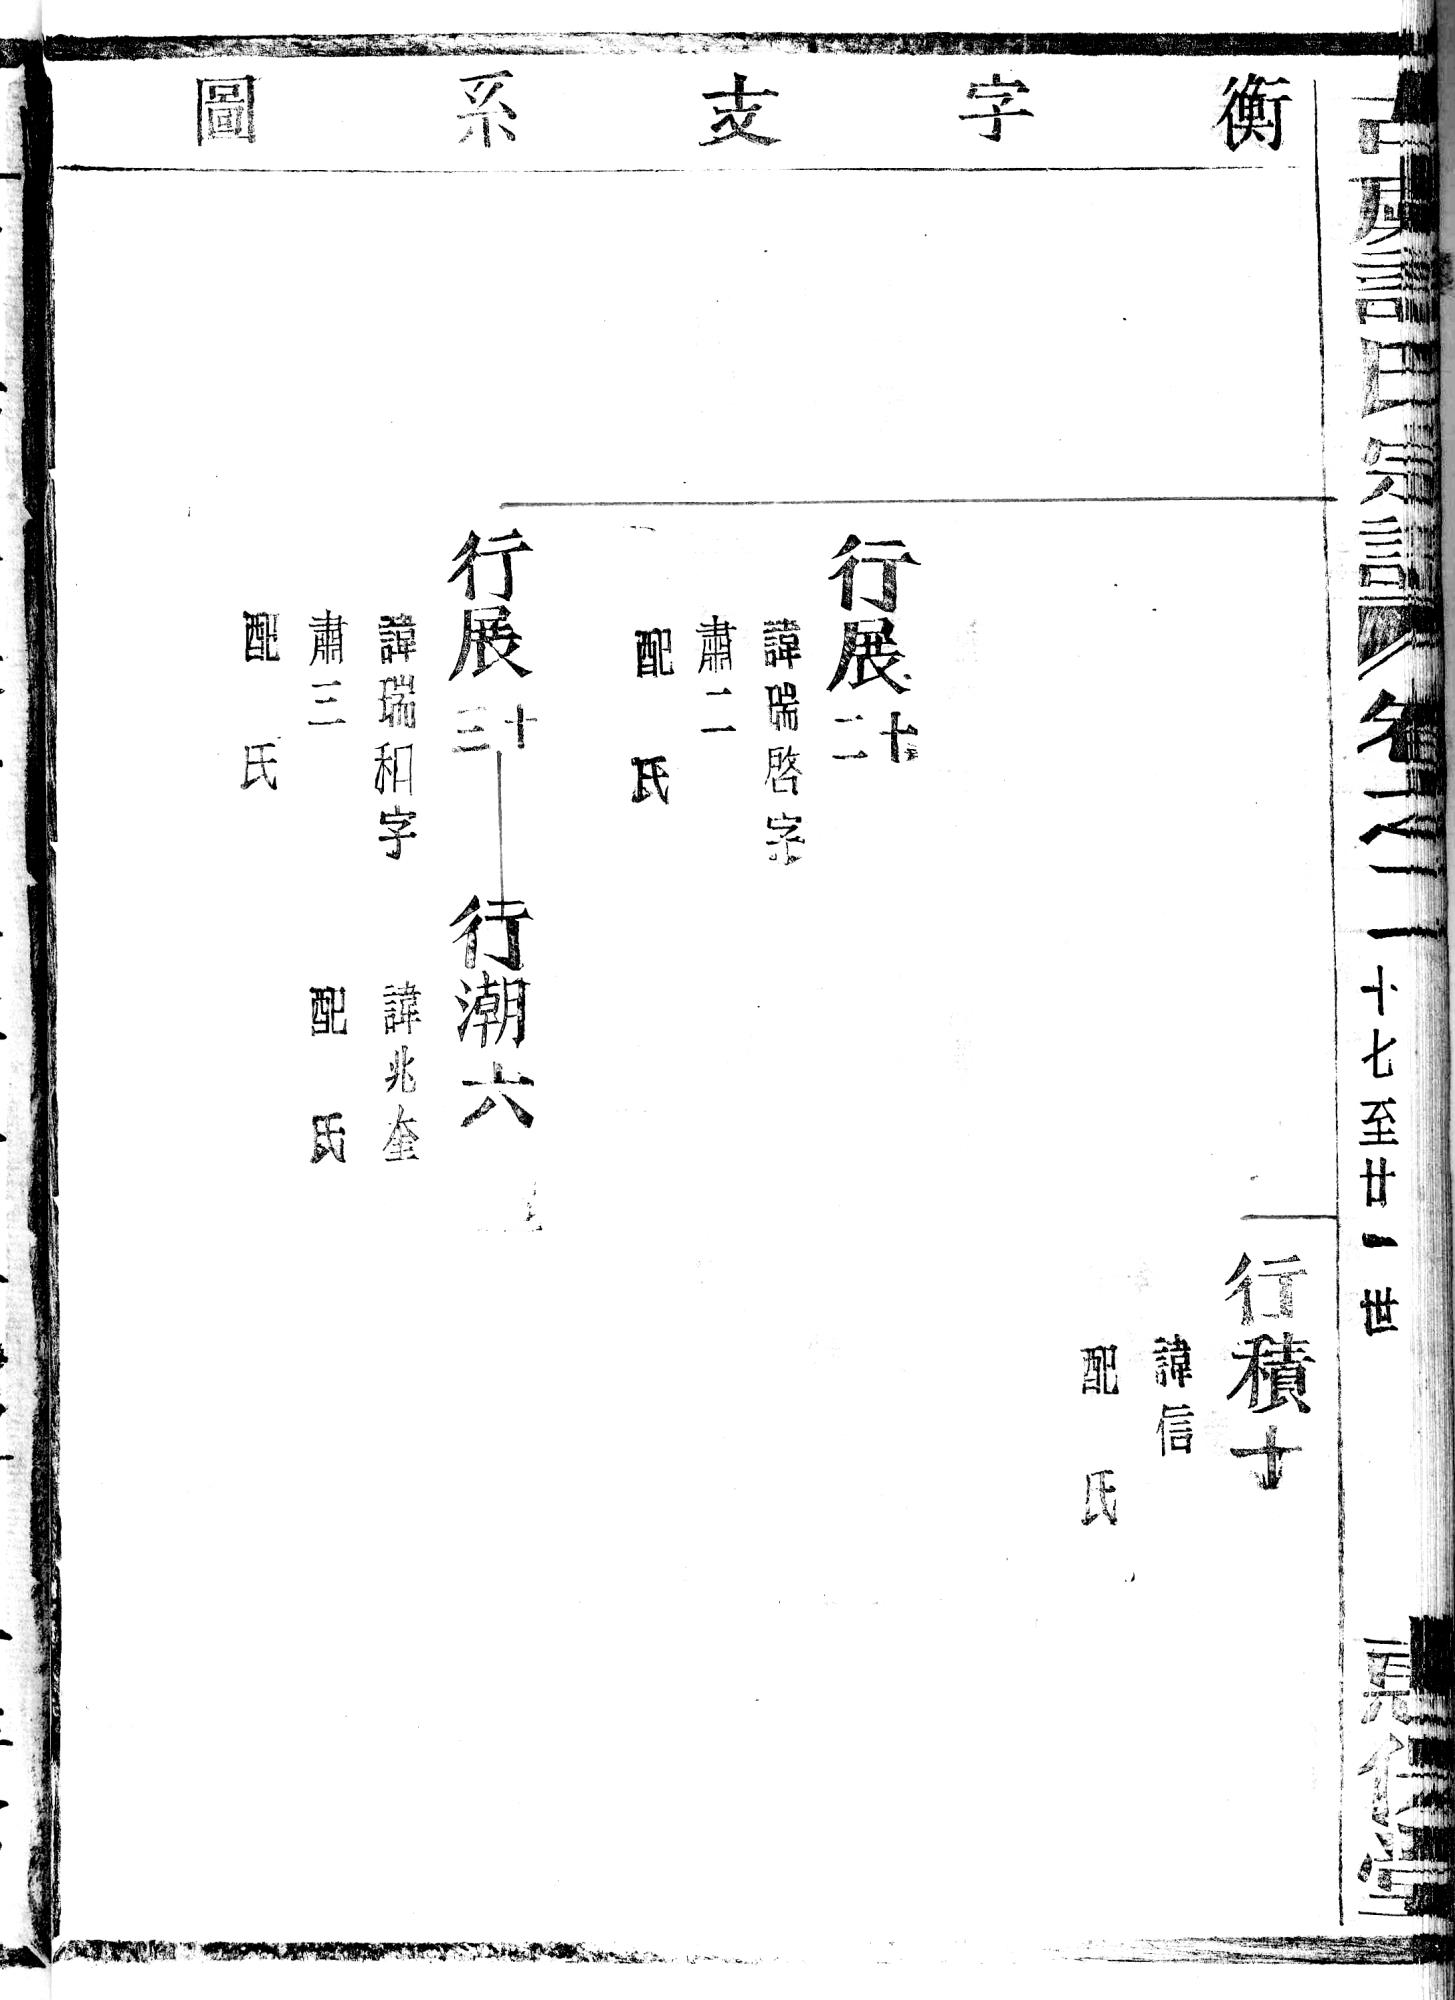 衡字支系圖
氏宗譜
卷之二
十七至廿一世
仁堂
行積十
諱信
配 氏
行展十二
諱瑞啓字
肅二
配 氏
行展十三
諱瑞和字
肅三
配 氏
行潮六
諱兆奎
配 氏